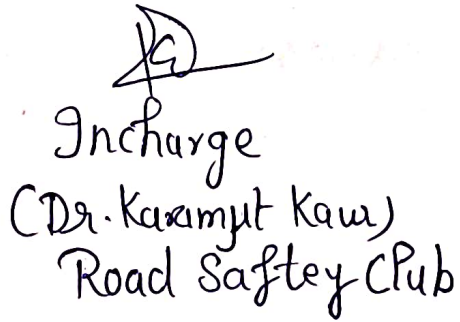 Incharge
(Dr. Karamjit Kaur)
Road Saftey Club